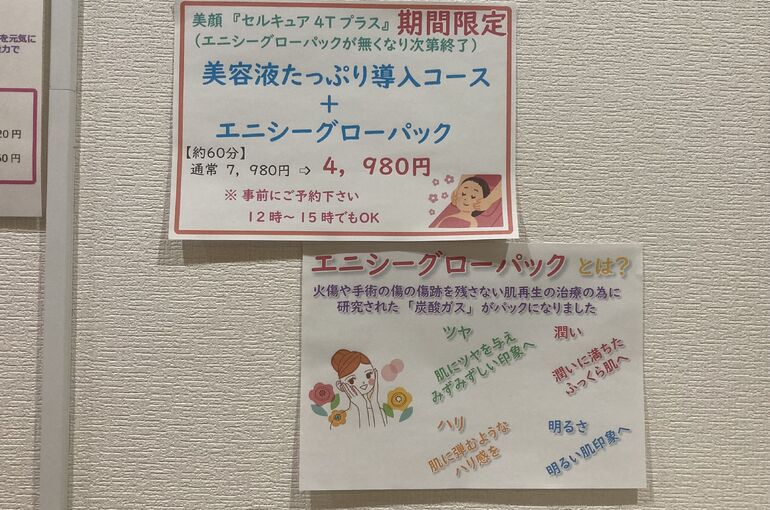 を元気に
力で
20円
50円
美顔『セルキュア4Tプラス』期間限定
(エニシーグローパックが無くなり次第終了)
美容液たっぷり導入コース
+
エニシーグローパック
【約60分】
通常 7,980円 ⇨ 4,980円
※ 事前にご予約下さい
12時~15時でもOK
エニシーグローパック とは?
火傷や手術の傷の傷跡を残さない肌再生の治療の為に
研究された「炭酸ガス」がパックになりました
ツヤ
肌にツヤを与え
みずみずしい印象へ
潤い
潤いに満ちた
ふっくら肌へ
ハリ
肌に弾むような
ハリ感を
明るさ
明るい肌印象へ